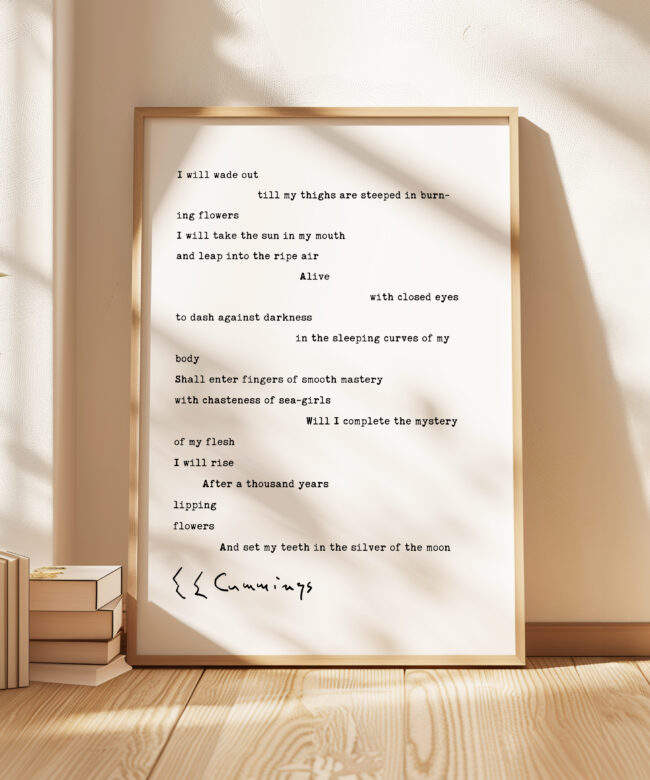 I will wade out
till my thighs are steeped in burn-
ing flowers
I will take the sun in my mouth
and leap into the ripe air
Alive
with closed eyes
to dash against darkness
in the sleeping curves of my
body
Shall enter fingers of smooth mastery
with chasteness of sea-girls
Will I complete the mystery
of my flesh
I will rise
After a thousand years
lipping
flowers
And set my teeth in the silver of the moon
E E Cummings